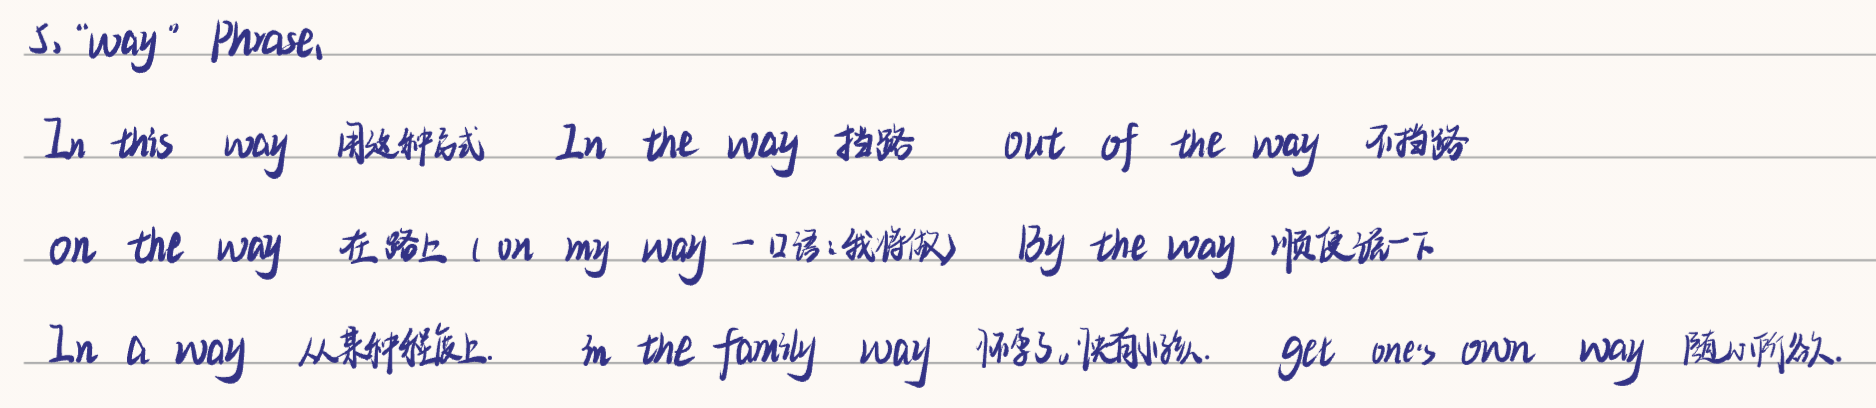 5、“way” Phrase、
In this way 用这种方式 In the way 挡路 out of the way 不挡路
on the way 在路上（on my way 一口语：我将做） By the way 顺便说一下
In a way 从某种程度上. in the family way 怀孕了，快有小孩儿. get one's own way 随心所欲.